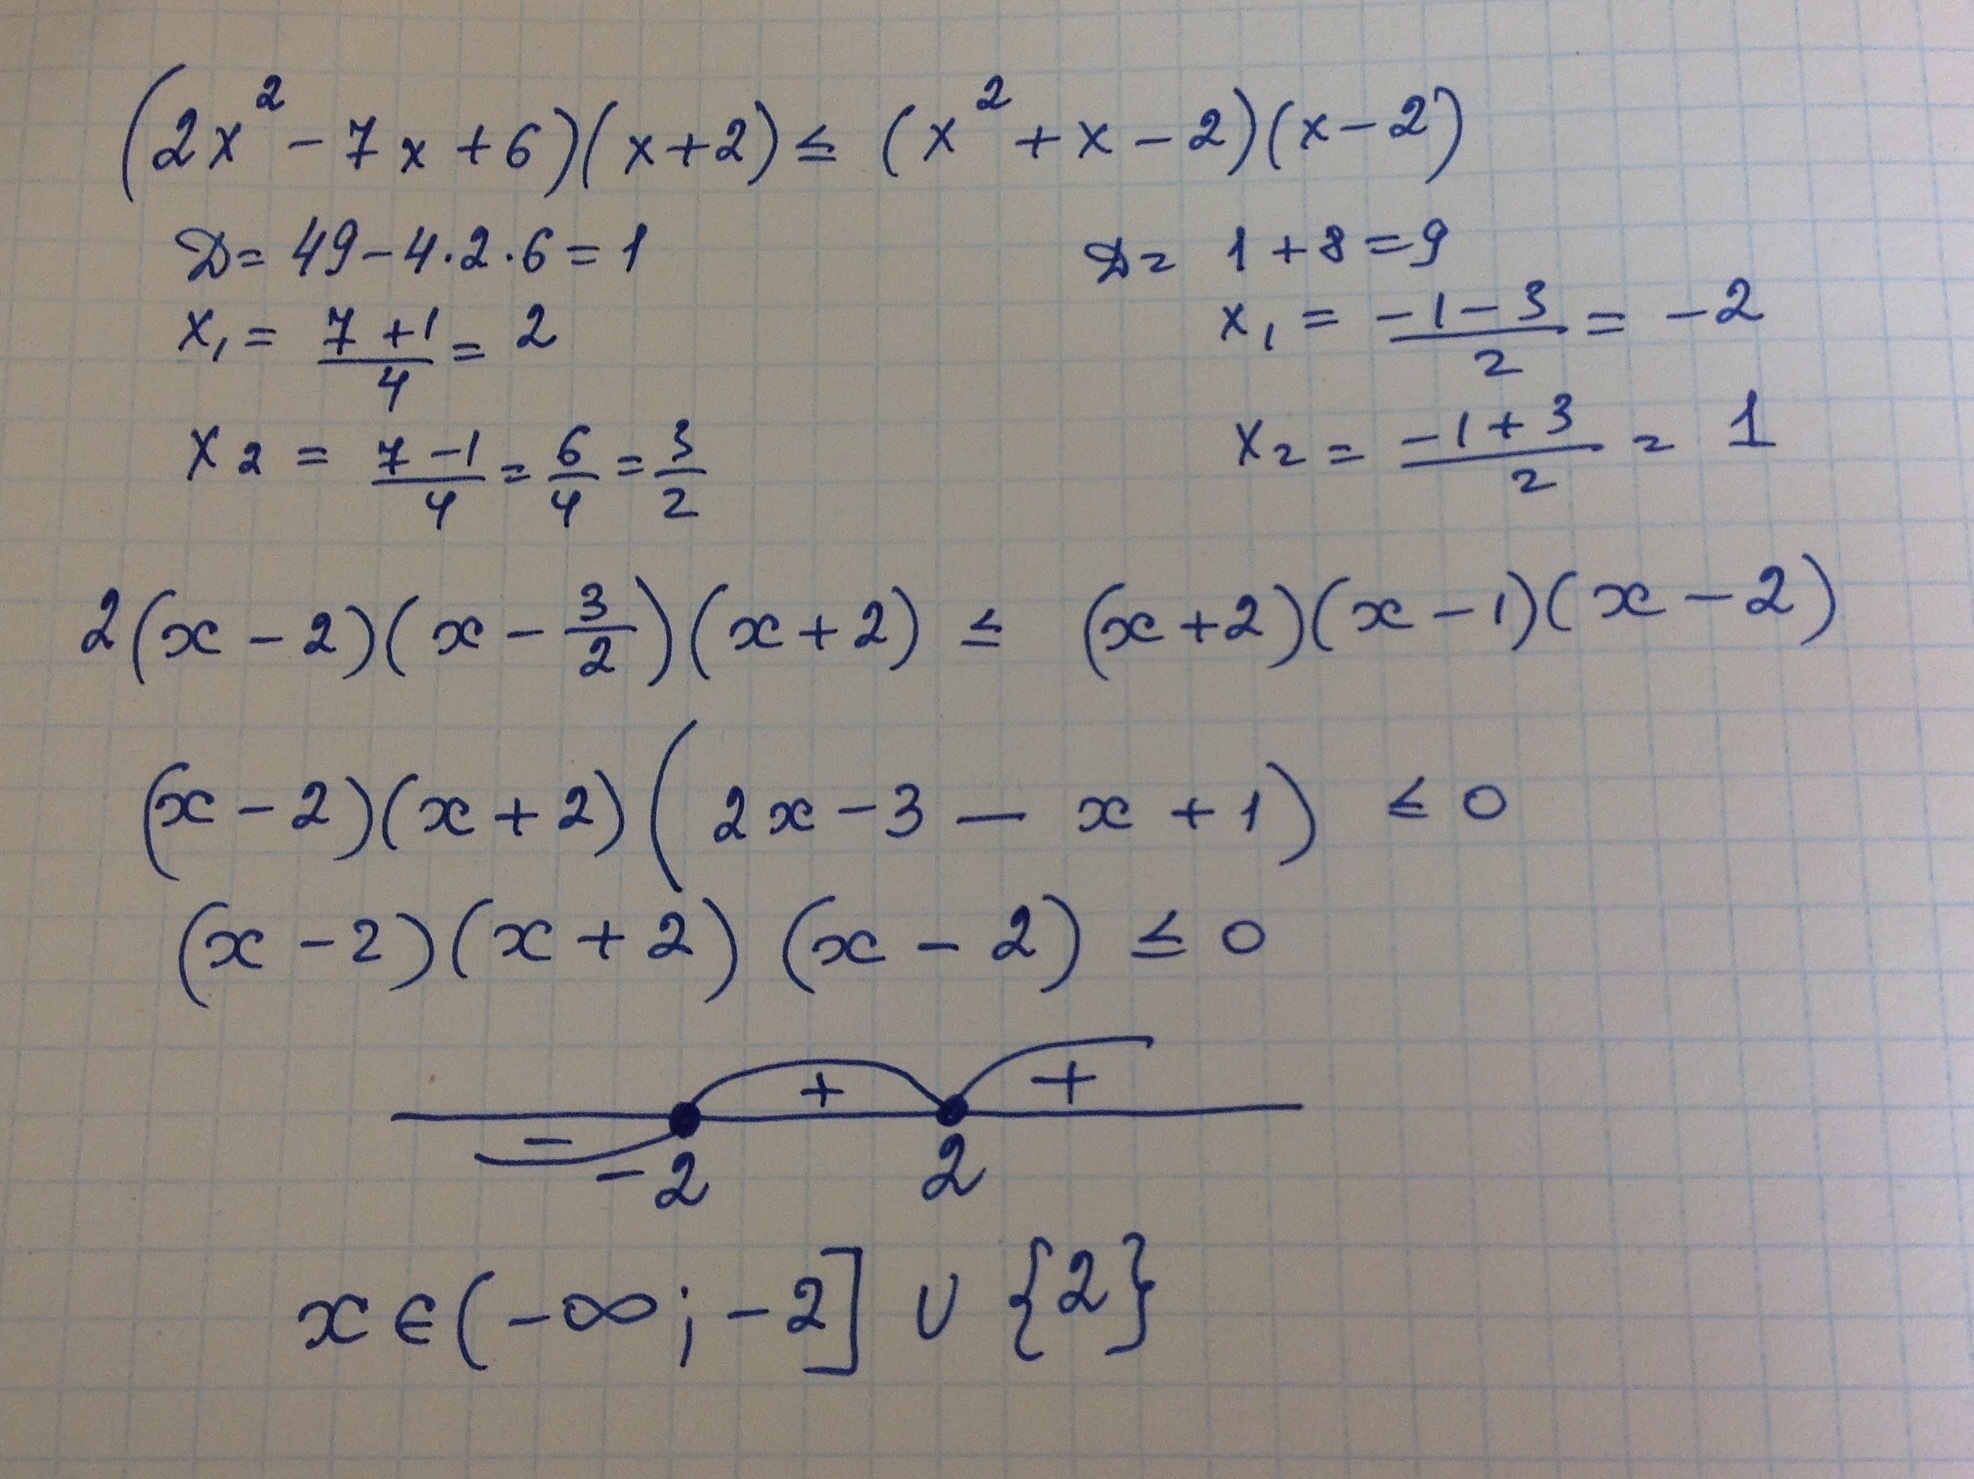 (2x² - 7x + 6)(x + 2) ≤ (x² + x - 2)(x - 2)
D = 49 - 4·2·6 = 1
D = 1 + 8 = 9
x₁ = (7 + 1)/4 = 2
x₁ = (-1 - 3)/2 = -2
x₂ = (7 - 1)/4 = 6/4 = 3/2
x₂ = (-1 + 3)/2 = 1
2(x - 2)(x - 3/2)(x + 2) ≤ (x + 2)(x - 1)(x - 2)
(x - 2)(x + 2)(2x - 3 - x + 1) ≤ 0
(x - 2)(x + 2)(x - 2) ≤ 0
- + +
-2 2
x ∈ (-∞; -2] ∪ {2}